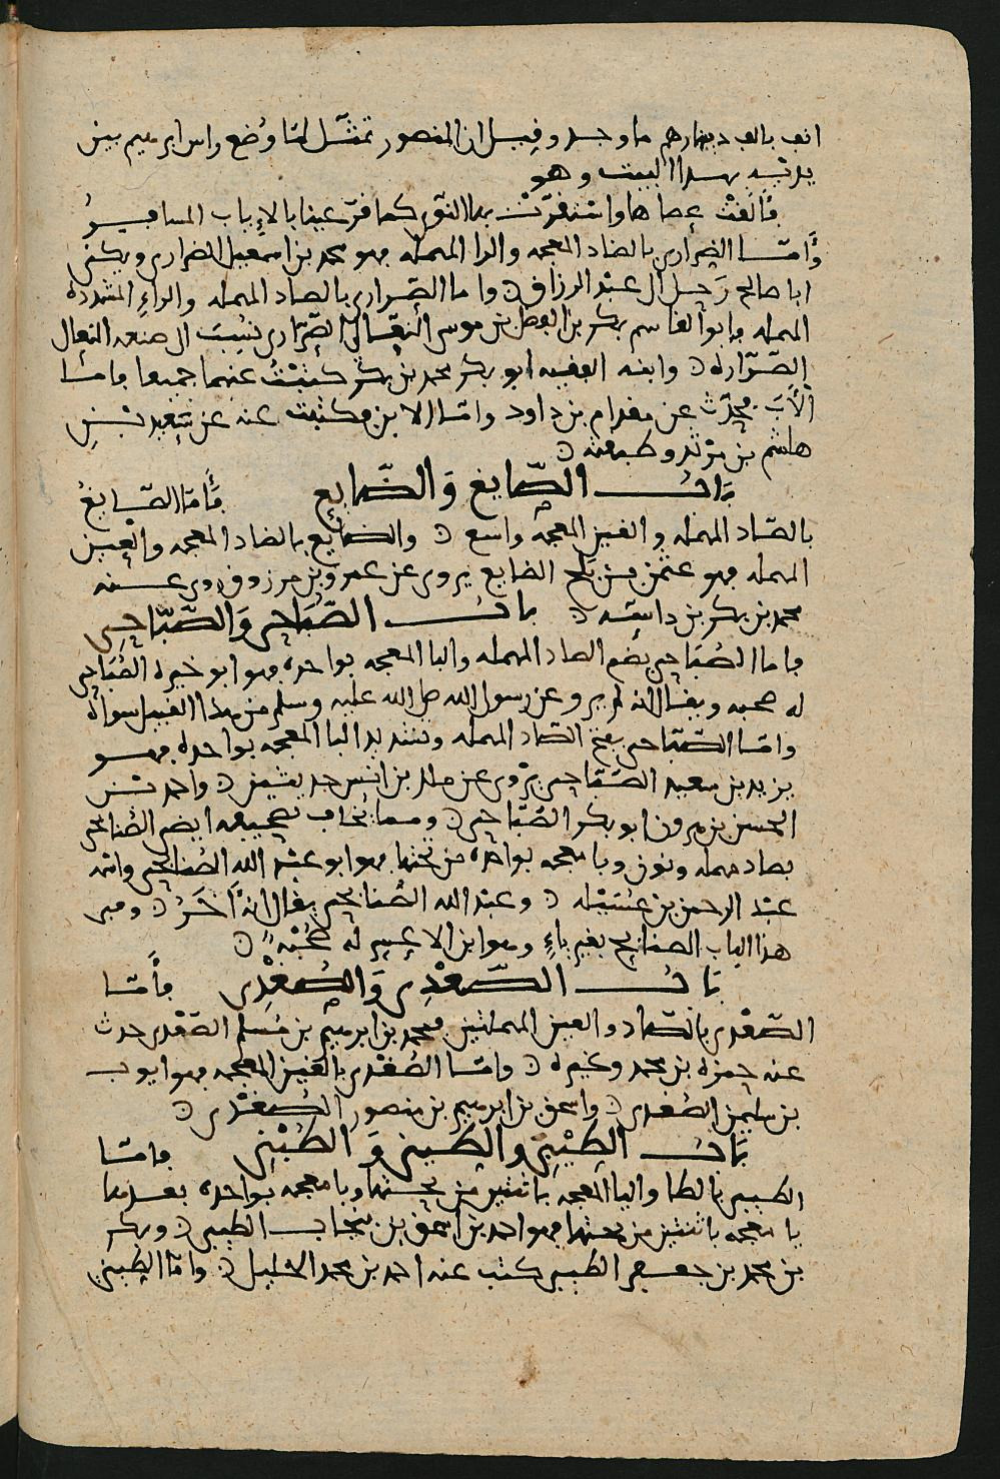 الف بالف دينار هم ما وجد وقيل ان المنصور تمثّل لمّا وُضع راس ابرهيم بين
يديه بهذا البيت وهو
فَألقَتْ عصاها واسْتقرّتْ بها النّوى كما قرّ عينا بالإياب المسافرُ
وَأمّا الضِراري بالضاد المعجمه والرا المهمله فهو محمد بن اسمعيل الضراري ويكنى
ابا صالح رَحل الى عبْد الرزاق واما الصّراري بالصاد المهمله والراءِ المشدده
المهمله فابو القاسم بكر بن الفضل بن موسى النعّالي الصّرّاري نُسِبَ الى صنعه النعال
الصّرّاره وابنه الفقيه ابو بكر محمد بن بكر كتبْتُ عنهما جميعا فامّا
الأبُ فحدّث عن مقدام بن داود وامّا الابن فكتبت عنه عن سَعيد بْنِ
هاشم بن مرْثد وطبقته
بَابُ الصّايغ وَالضّايع فَأمّا الصّايغُ
بالصّاد المهمله والغين المعجمه واسع والضايع بالضاد المعجمه والعين
المهمله فهو عثمن بن بلج الضايع يروى عن عمرو بن مرزوق روى عنه
محمد بن بكر بن داسَه بابُ الصُّبَاحي وَالصَّبّاحي
فاما الصُبَاحي بضم الصاد المهمله والبا المعجمه بواحده فهو ابو خيره الصُبَاحي
له صحبه ويقال انه لم يرو عن رسول الله صلى الله عليه وسلم من هذا القبيل سواه
وامّا الصَّبّاحي بفتح الصّاد المهمله وتشديد البا المعجمه بواحده فهو
يزيد بن سعيد الصَّبّاحي يرْوى عن ملك بن انس حديثين واحمد بْن
الحسن بن هرون ابو بكر الصَّبّاحي ومما يُخاف تصحيفه ايضا الصُّنابحي
بصاد مهمله ونون وبا معجمه بواحده من تحتها فهو ابو عبْد الله الصُنابحي واسمه
عبْد الرحمن بن عُسَيْله وعبْد الله الصُنابحي يقال انه آخَرُ وفي
هذا الباب الصنابح بغير ياءٍ وهو ابن الاعسر له صُحْبَه
بَابُ الصَّعْدِى وَالصُغْدِى فأمّا
الصّعْدي بالصّاد والعين المهملتين فمحمد بن ابرهيم بن مُسلم الصَّعْدي حدث
عنه حمزه بن محمد وغيره وامّا الصُغْدي بالغين المعجمه فهو ايوب
بن سليمن الصُغدي واسحق بن ابرهيم بن منصور الصُغْدي
بَابُ الطِيْبِي والطيني وَالطُبْنِي فامّا
الطيبي بالطا واليا المعجمه باثنتين من تحتها وبا معجمه بواحده بعدها
يا معجمه باثنتين من تحتها فهو احمد بن اسحق بن نيخاب الطيبي وبكر
بن محمد بن جعفر الطيبي كتب عنه احمد بن محمد الخليل وامّا الطيني